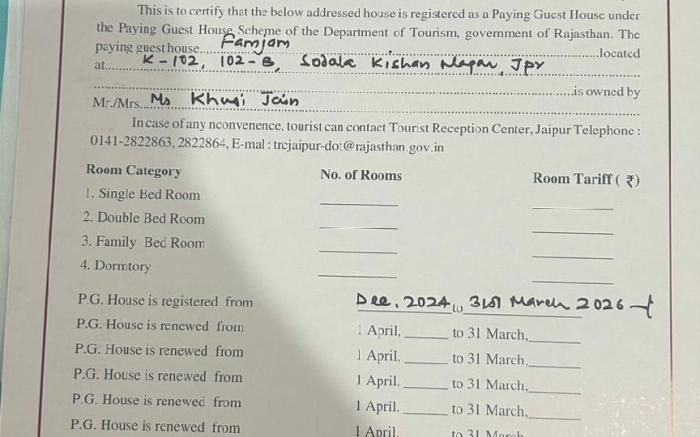 This is to certify that the below addressed house is registered as a Paying Guest House under
the Paying Guest House Scheme of the Department of Tourism, government of Rajasthan. The
paying guest house.....Famjam..........located
at..........K-102, 102-B, Sodala Kishan Nagar, Jpr
..........is owned by
Mr./Mrs. Ms Khusi Jain
In case of any nconvenence, tourist can contact Tourist Reception Center, Jaipur Telephone :
0141-2822863, 2822864, E-mal : trcjaipur-dot@rajasthan.gov.in
Room Category No. of Rooms Room Tariff ( ₹)
1. Single Bed Room
2. Double Bed Room
3. Family Bed Room
4. Dormtory
P.G. House is registered from Dec, 2024 to 31st March 2026
P.G. House is renewed from 1 April, ______ to 31 March,______
P.G. House is renewed from 1 April, ______ to 31 March,______
P.G. House is renewed from 1 April, ______ to 31 March,______
P.G. House is renewed from 1 April, ______ to 31 March,______
P.G. House is renewed from 1 April, to 31 March